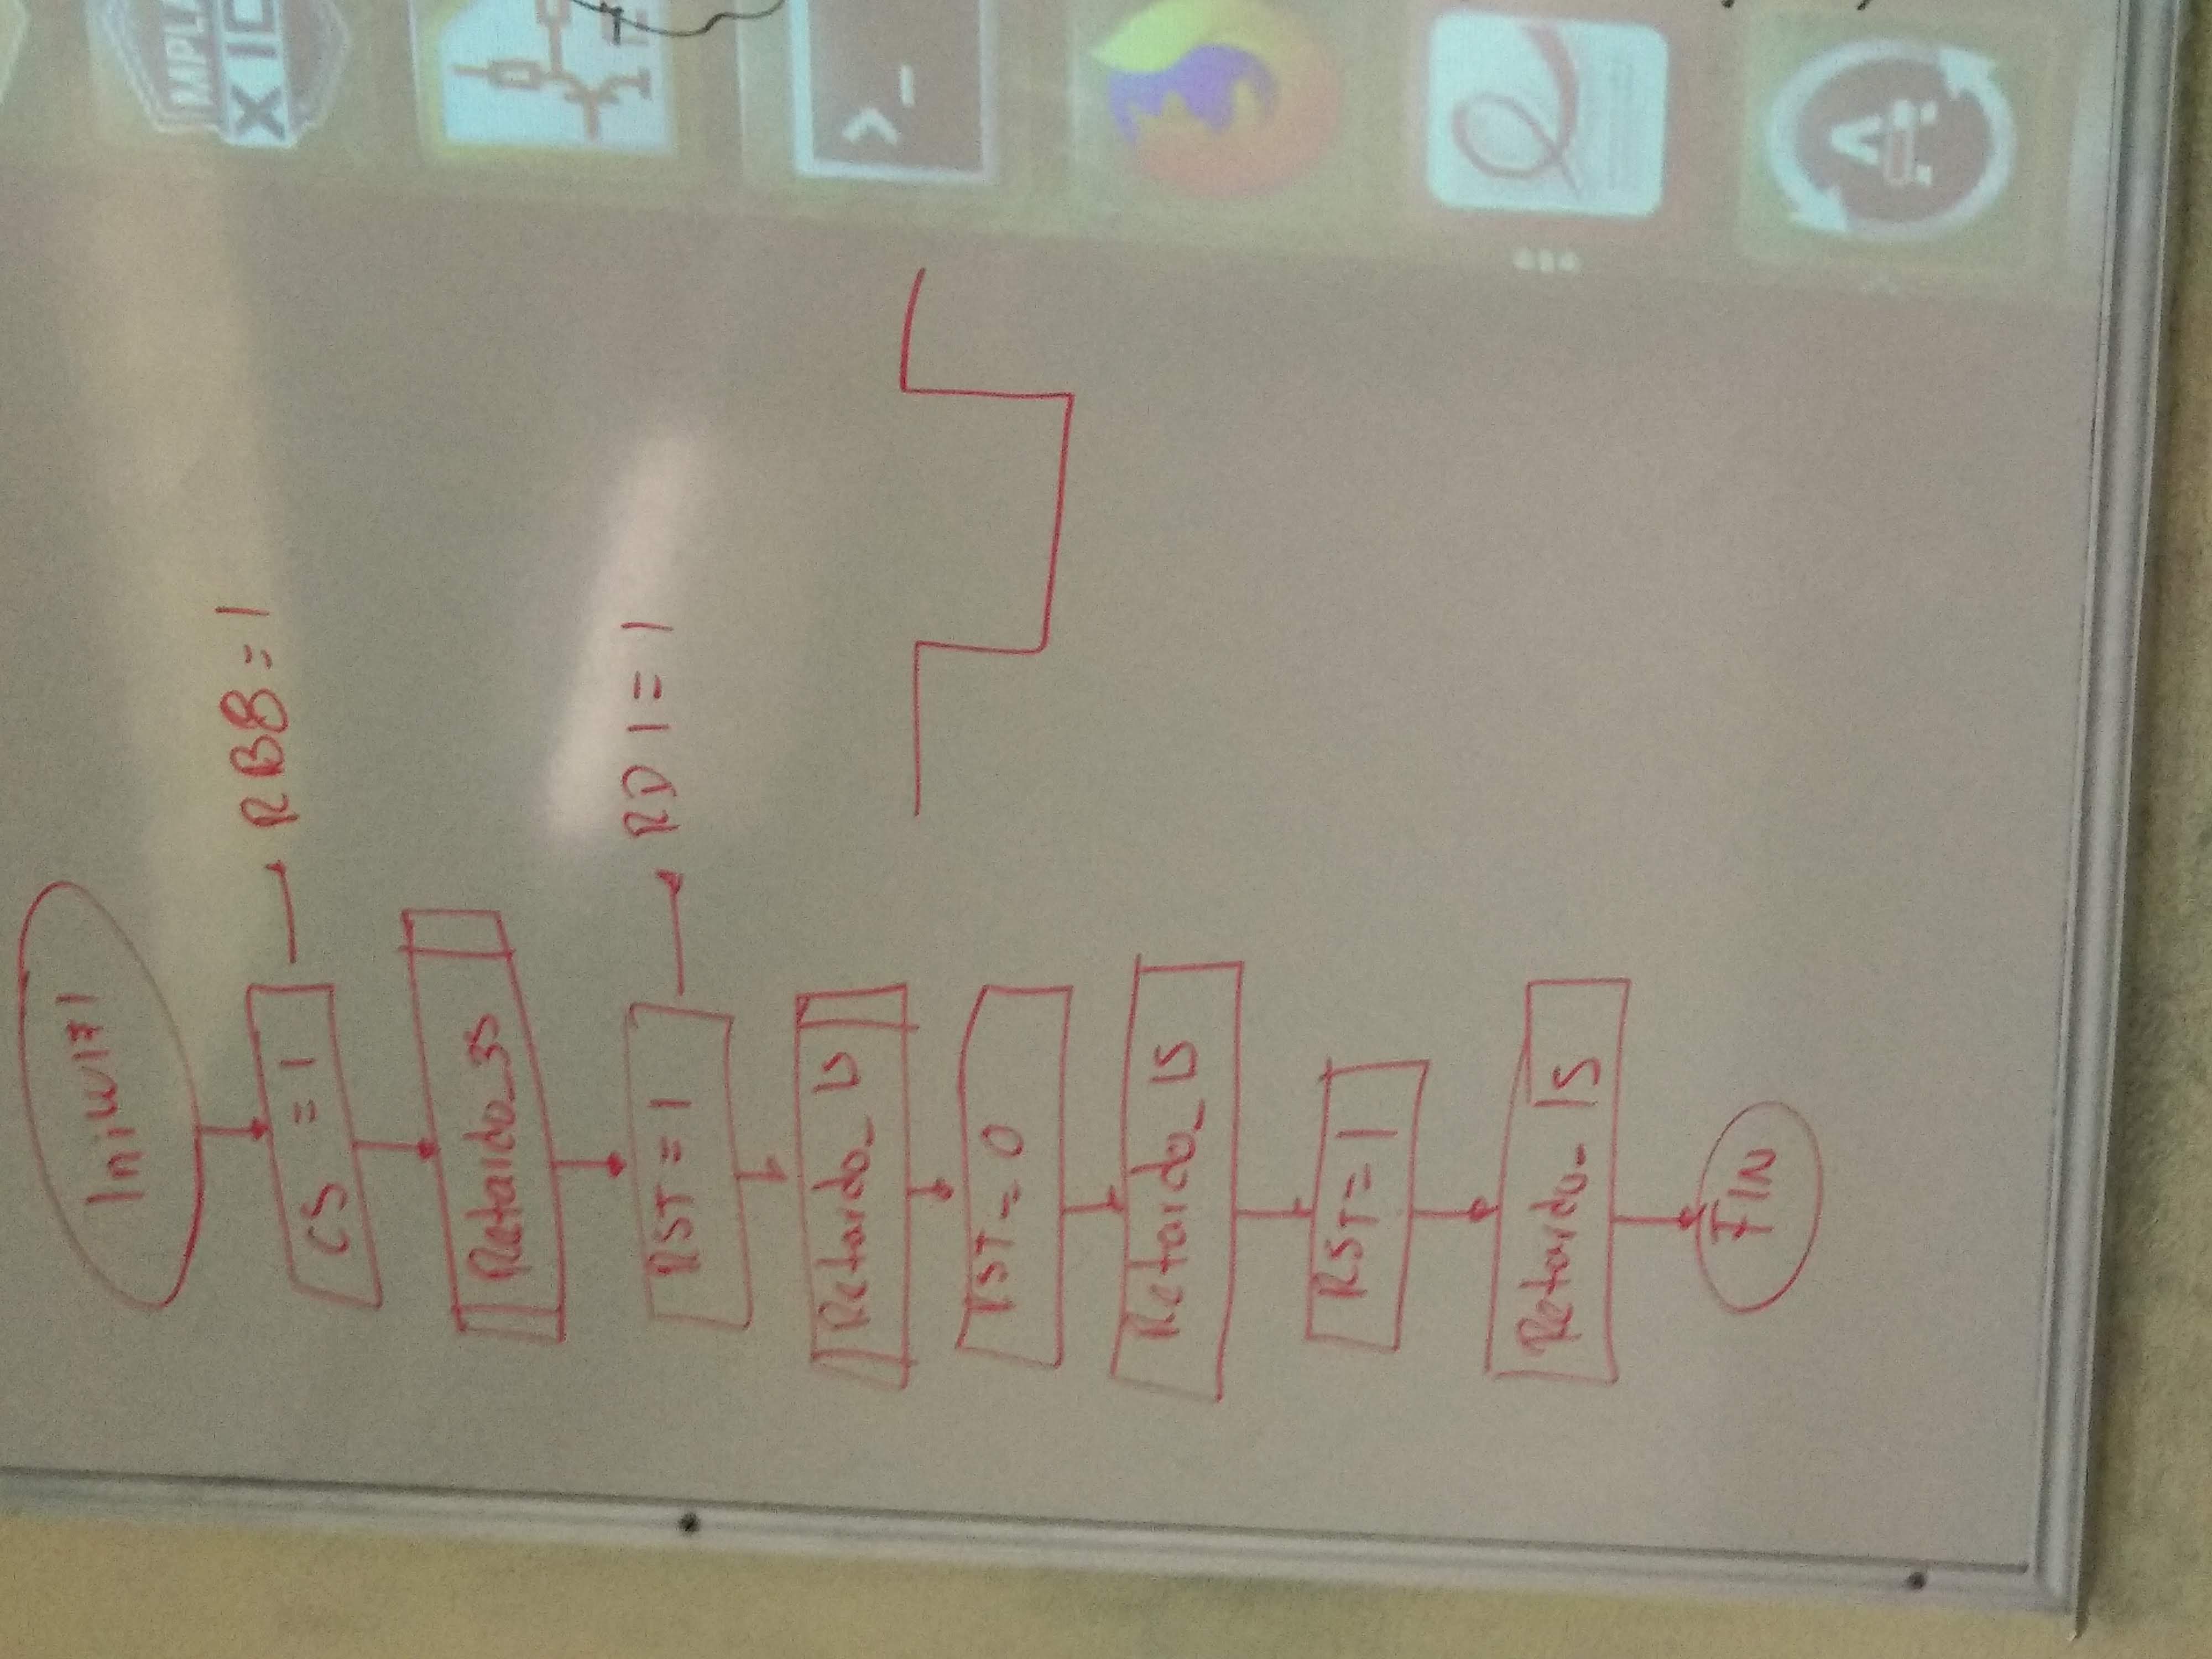 IniWIFI
CS = 1
RB8 = 1
Retardo_3S
RST = 1
RD1 = 1
Retardo_1S
RST = 0
Retardo_1S
RST = 1
Retardo_1S
FIN
MPLA
X ID
>_
A